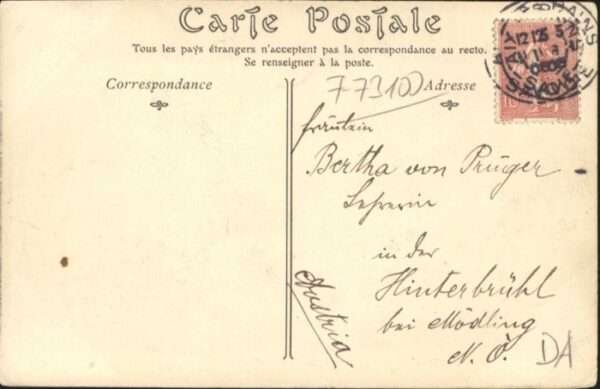 Carte Postale
Tous les pays étrangers n'acceptent pas la correspondance au recto.
Se renseigner à la poste.
Correspondance
Adresse
77310
Fräulein
Bertha von Prüger
Lehrerin
in der
Hinterbrühl
bei Mödling
N. Ö.
Austria
DA